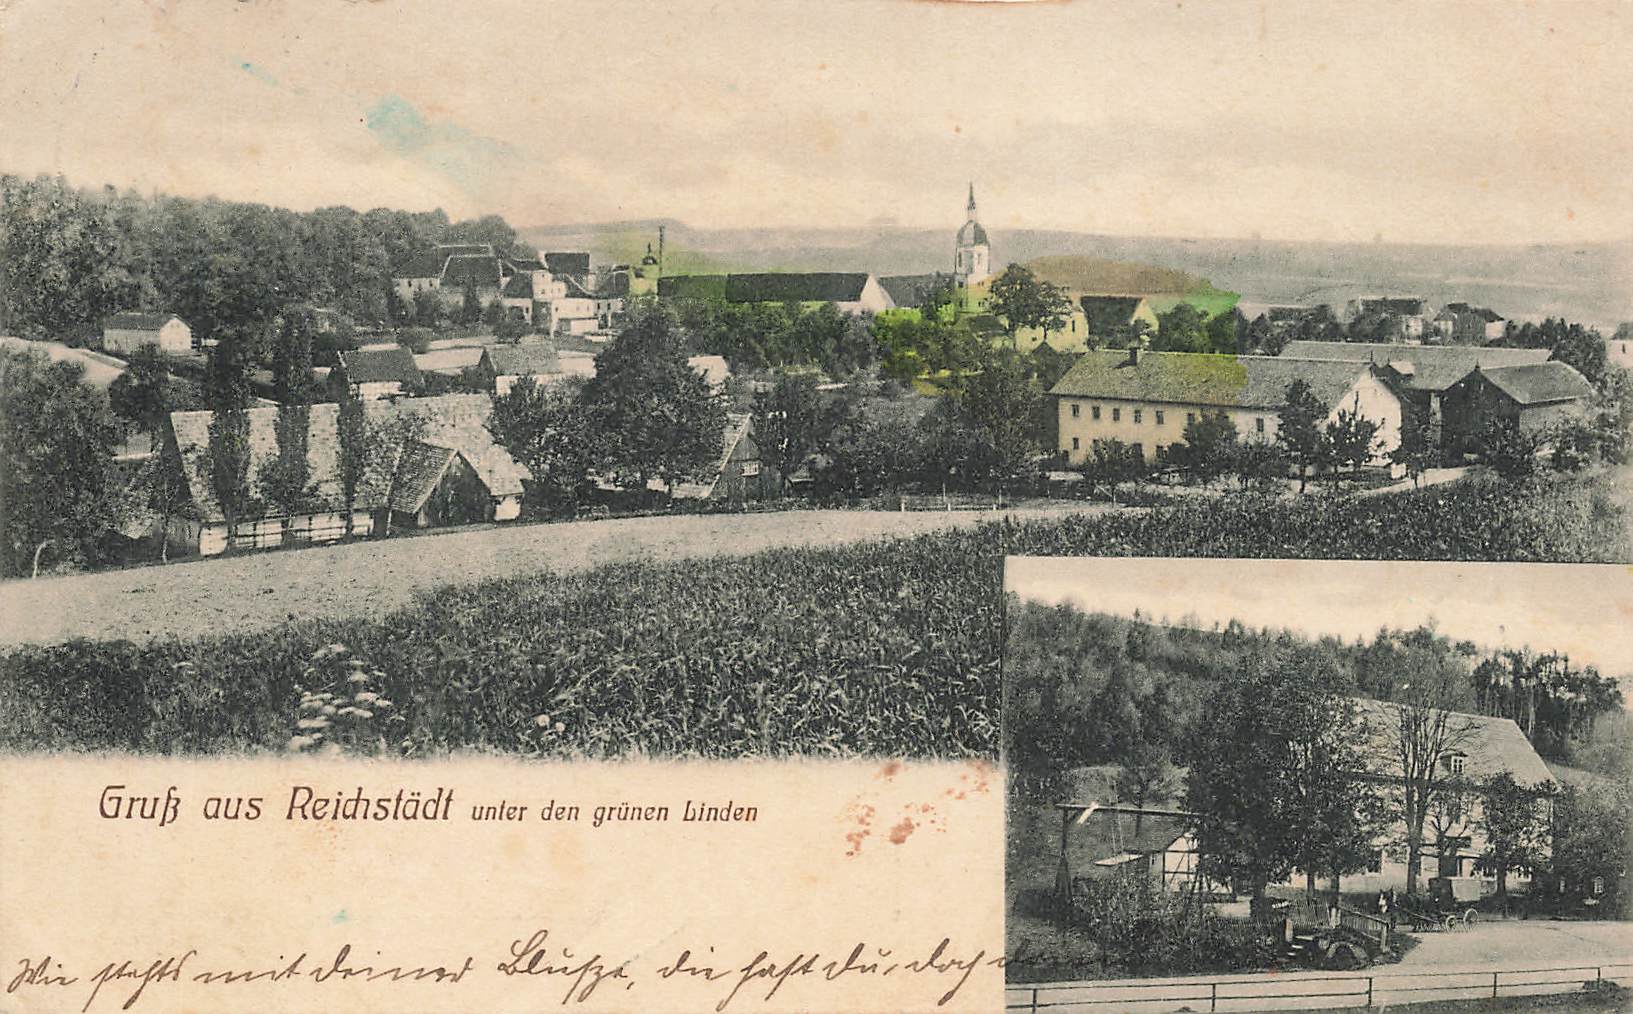 Gruß aus Reichstädt unter den grünen Linden
Wie stehts mit deiner Blusze, die hast du, doch